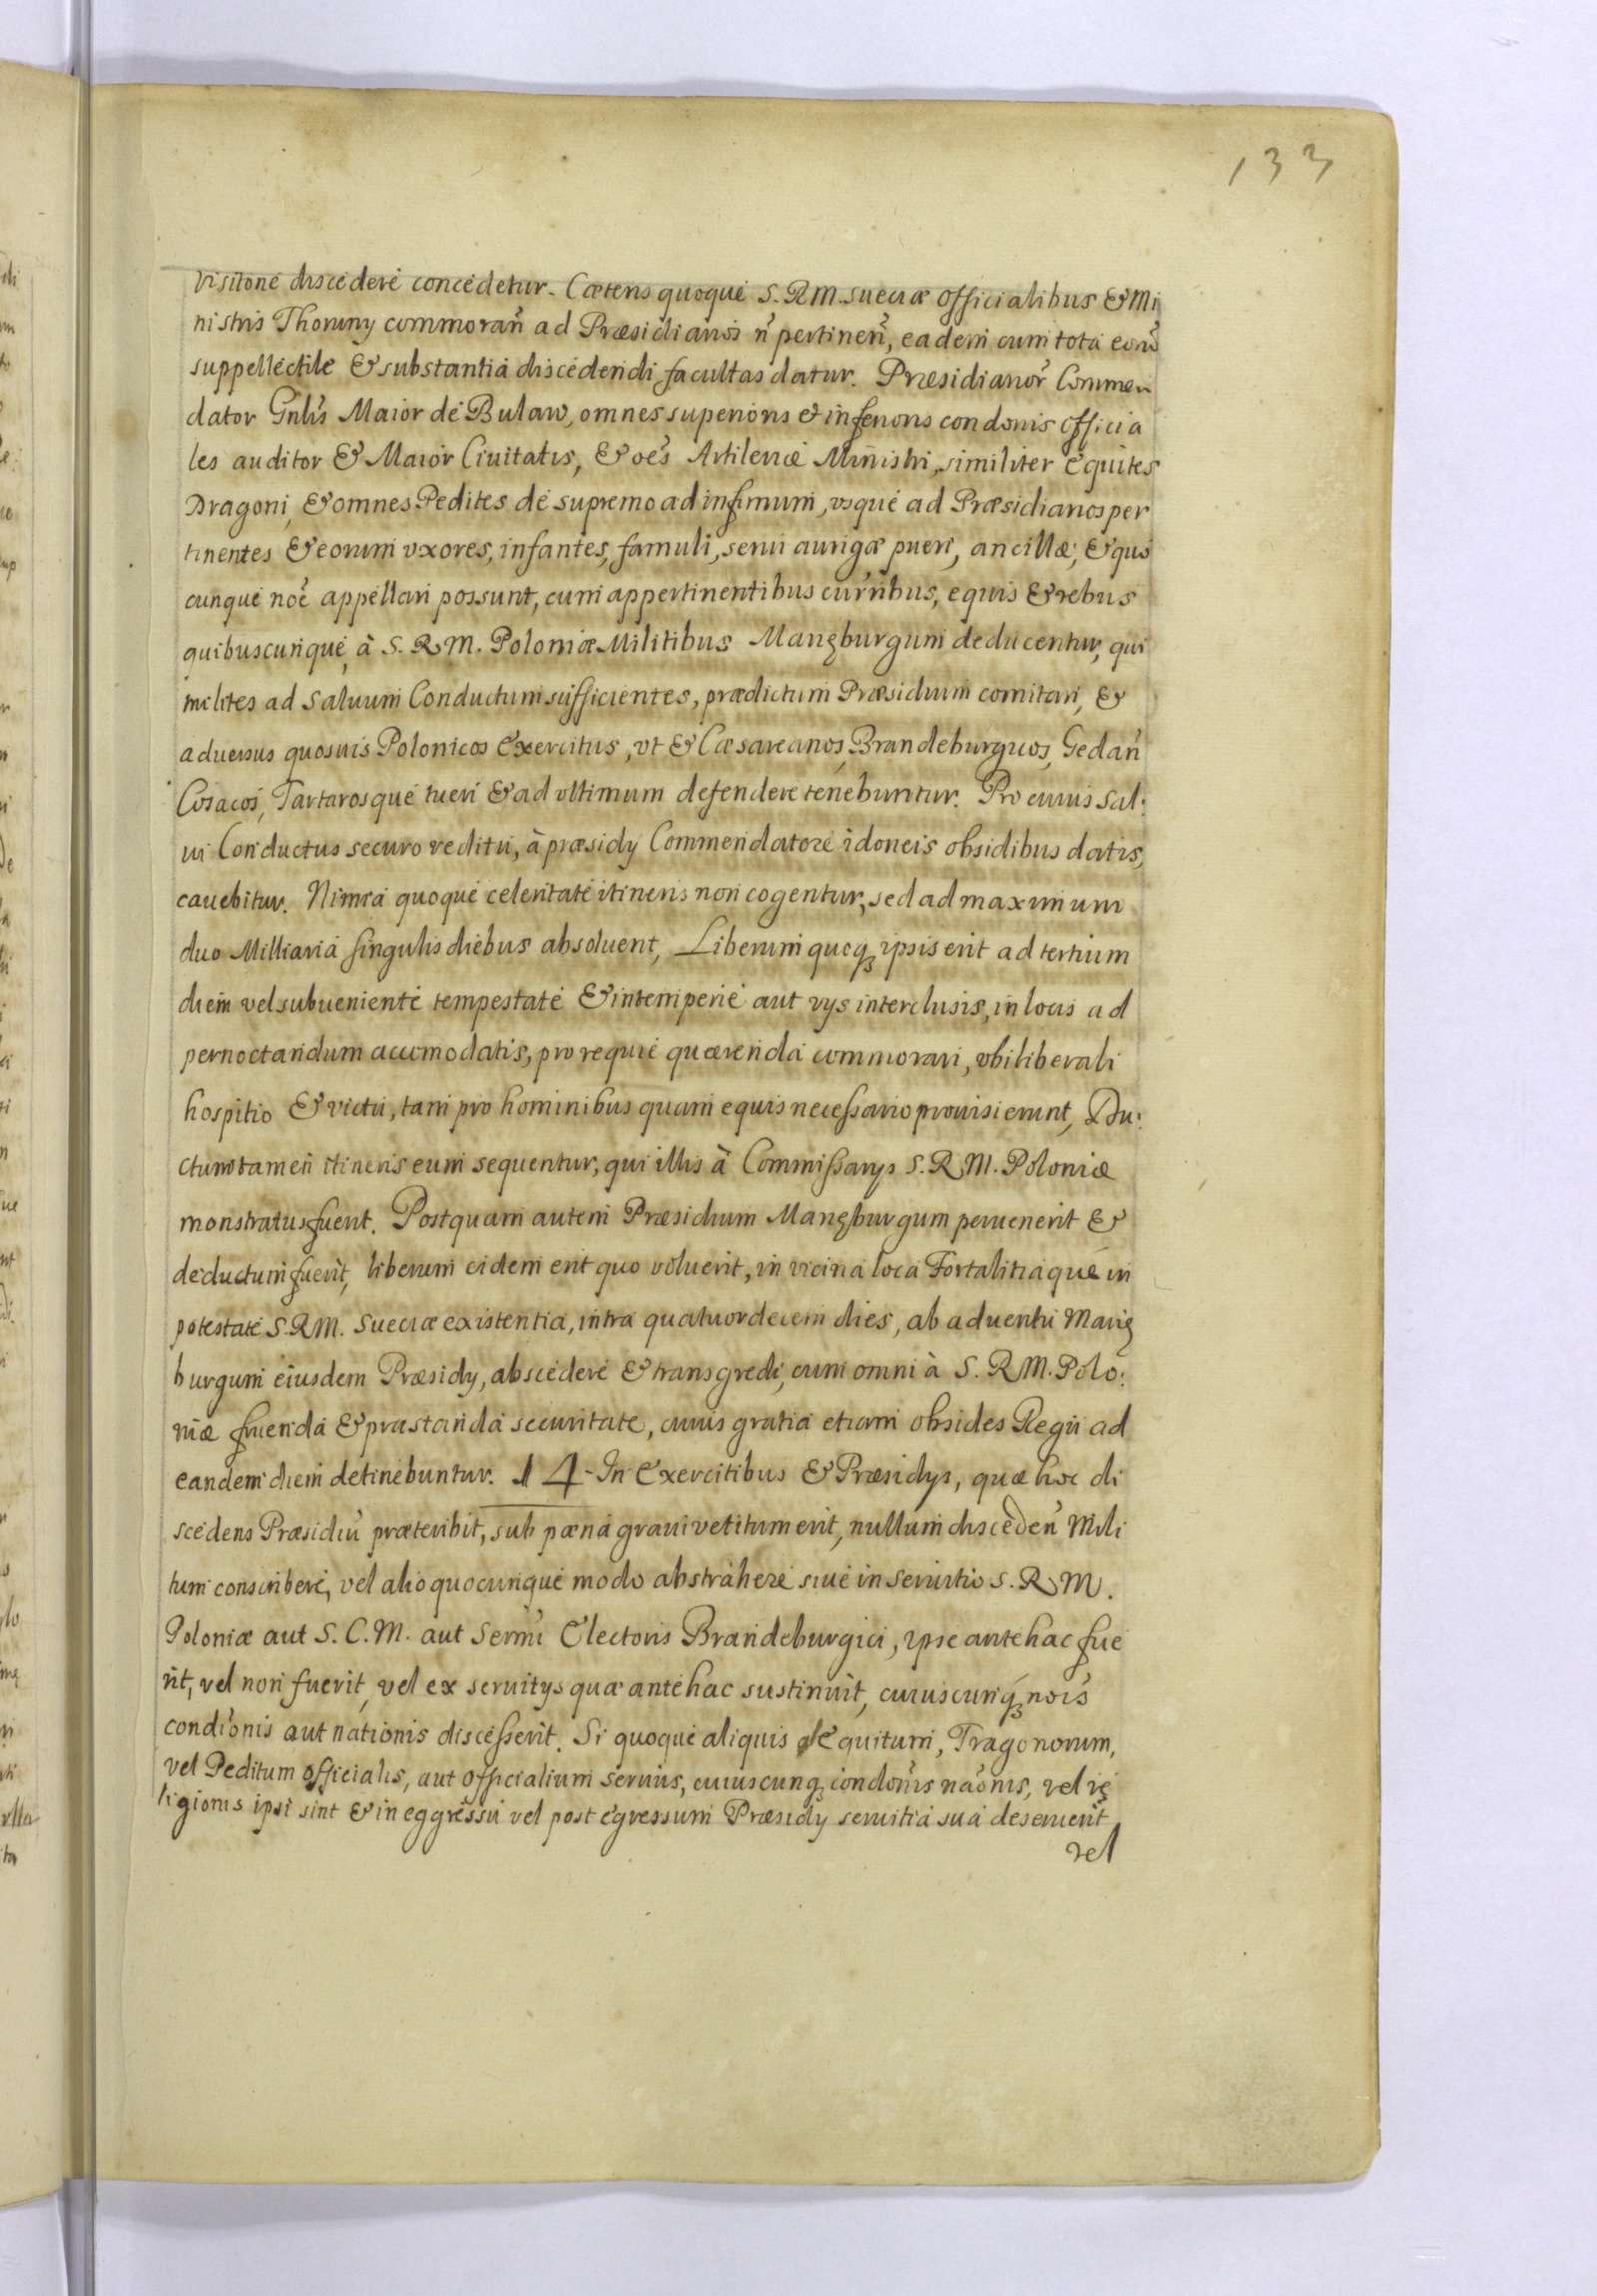 133
visitone discedere concedetur. Cæteris quoque S. R M. Sueciæ officialibus & Mi
nistris Thoruny commorañ ad Præsidianos ñ pertineñ, eadem cum tota eorũ
suppellectile & substantia discedendi facultas datur. Præsidianor̃ Commen
dator Gnlĩs Maior de Bulaw, omnes superioris et inferioris condonis Officia
les auditor & Maior Ciuitatis, & oẽs Artileriæ Ministri, similiter Equites
Dragoni, & omnes Pedites de supremo ad infimum, vsque ad Præsidianos per
tinentes & eorum vxores, infantes, famuli, serui aurigæ pueri, ancillæ, & quo
cunque noẽ appellari possunt, cum appertinentibus currĩbus, equis & rebus
quibuscunque, à S. R. M. Poloniæ Militibus Marięburgum deducentur, qui
milites ad saluum Conductum sufficientes, prædictum Præsidium comitari, &
aduersus quosuis Polonicos Exercitus, vt & Cæsareanos, Brandeburguos, Gedañ
Cosacos, Tartarosque tueri & ad vltimum defendere tenebuntur. Pro cuius Sal:
ui Conductus securo reditu, à præsidy Commendatore idoneis obsidibus datis,
cauebitur. Nimia quoque celeritate itineris non cogentur, sed ad maximum
duo Milliaria singulis diebus absoluent, Liberum quoq̨ ipsis erit ad tertium
diem vel subueniente tempestate & intemperie aut vys interclusis, in locis ad
pernoctandum accomodatis, pro requie quærenda commorari, vbi liberali
hospitio & victu, tam pro hominibus quam equis necessario prouisi erunt, Du:
ctum tamen itineris eum sequentur, qui illis à Commissarys S. R. M. Poloniæ
monstratus fuerit. Postquam autem Præsidium Marięburgum peruenerit &
deductum fuerit, liberum eidem erit quo voluerit, in vicina loca Fortalitiaque in
potestate S. R M. Sueciæ existentia, intra quatuordecem dies, ab aduentu Marię
burgum eiusdem Præsidy, abscedere & transgredi, cum omni à S. R M. Polo:
niæ fruenda & præstanda securitate, cuius gratia etiam obsides Regii ad
eandem diem detinebuntur. 14 - In Exercitibus & Præsidys, quæ hoc di
scedens Præsidiũ præteribit, sub pæna graui vetitum erit, nullum discedeñ Mili
tum conscribere, vel alio quocunque modo abstrahere siue in seruitio S. R M.
Poloniæ aut S. C. M. aut Sermi Electoris Brandeburgici, ipse antehac fue
rit, vel non fuerit, vel ex seruitys quæ antehac sustinuit, cuiuscunq̨ noĩs
condiõnis aut nationis discesserit. Si quoque aliquis Equitum, Tragonorum,
vel Peditum officialis, aut officialium seruus, cuiuscunq̨ condõnis naõnis, vel rę
ligionis ipsi sint & in eggressu vel post egressum Præsidy seruitia sua deseruerit
vel